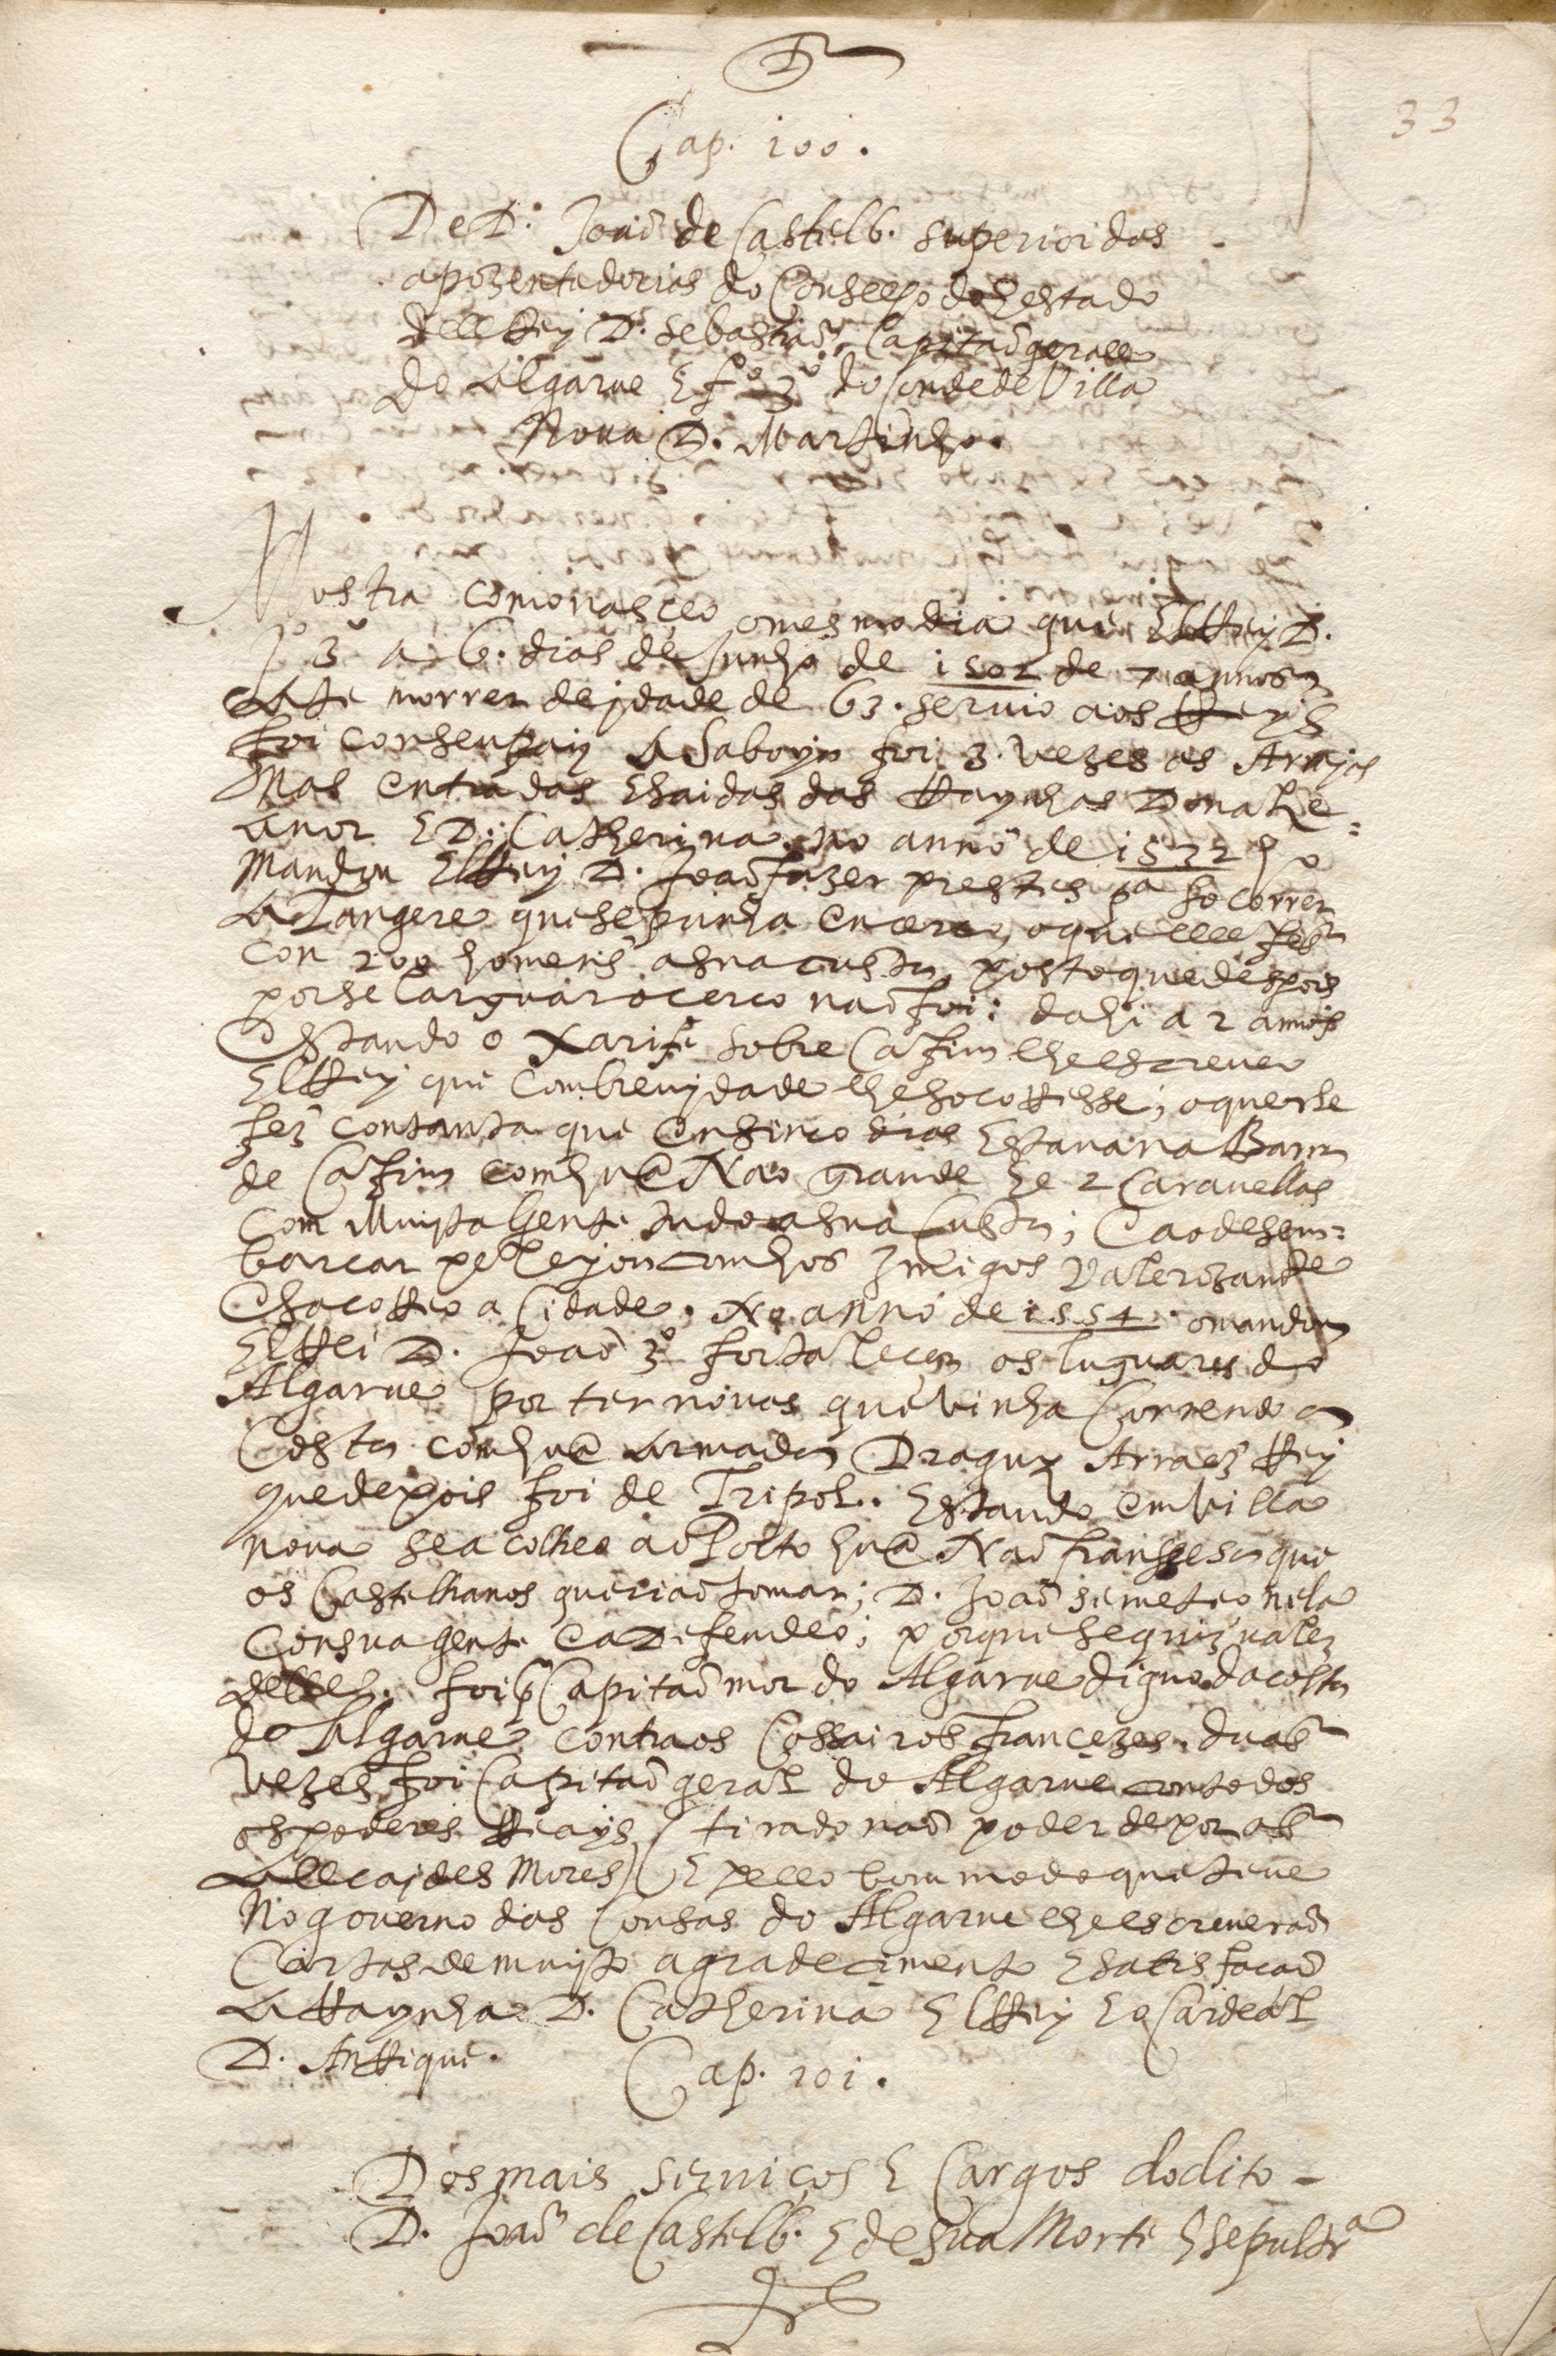 33
Cap. 100.
De D. Joaõ de Castelb. superior das
apozentadorias do Conselho do Estado
dell Rey D. Sebastiaõ, Capitaõ geralle
do Algarue E fº 3º do Conde de Villa
Noua D. Martinho.
Mostra como nasceo o mesmo dia que El Rey D.
Jº 3º a 6. dias de Junho de 1502 de 7 annos
athe morrer de jdade de 63. seruio aos Reys
foi con seu pay a Saboya foi 3. vezes as Arrajas
Mas entradas E saidas das Raynhas Dona Lia=
anor E D. Catherina. no anno de 1532
Mandou El Rey D. Joaõ fazer prestes pª socorrer
a Tangere que se punha en cerco, o que elle fes
con 200 homens a sua custa, posto que despois
por se larguar o cerco naõ foi: dahi a 2 annos
Estando o Xarife sobre Cafim lhe escreueo
El Rey que com breuydade lhe socorresse; o que elle
fez con tanta que en sinco dias Estaua na Barra
de Cafim com hua Nao grande he 2 Carauellas
com muyta Gente tudo a sua Custa; E ao desem=
barcar pelejou com hos Imigos Valerozamte
E socorreo a Cidade. No anno de 1554. o mandou
El Rei D. Joaõ 3º fortalecer os luguares do
Algarue por ter nouas que vinha Correndo a
Costa com hua armada Dragut Arraez Rey
que depois foi de Tripol. Estando em Villa
noua se acolheo ao Porto hua Nao franseza que
os Castelhanos queriaõ tomar; D. Joaõ se meteo nela
Con sua gente E a Defendeo; porque se quiz ualer
delle. foi Capitaõ mor do Algarue digno da costa
do Algarue contra os Cossairos francezes. duas
vezes foi Capitaõ geral do Algarue con todos
os poderes Reays (tirado naõ poder depor os
Allcajdes Mores) E pello bom modo que teue
No gouerno das Cousas do Algarue lhe escreueraõ
Cartas de muyto agradecimento E satisfacaõ
A Raynha D. Catherina El Rey E o Cardeal
D. Anrrique.
Cap. 101.
Dos mais seruiços E Cargos do dito
D. Joaõ de Castelb. E de sua Morte E sepultrª